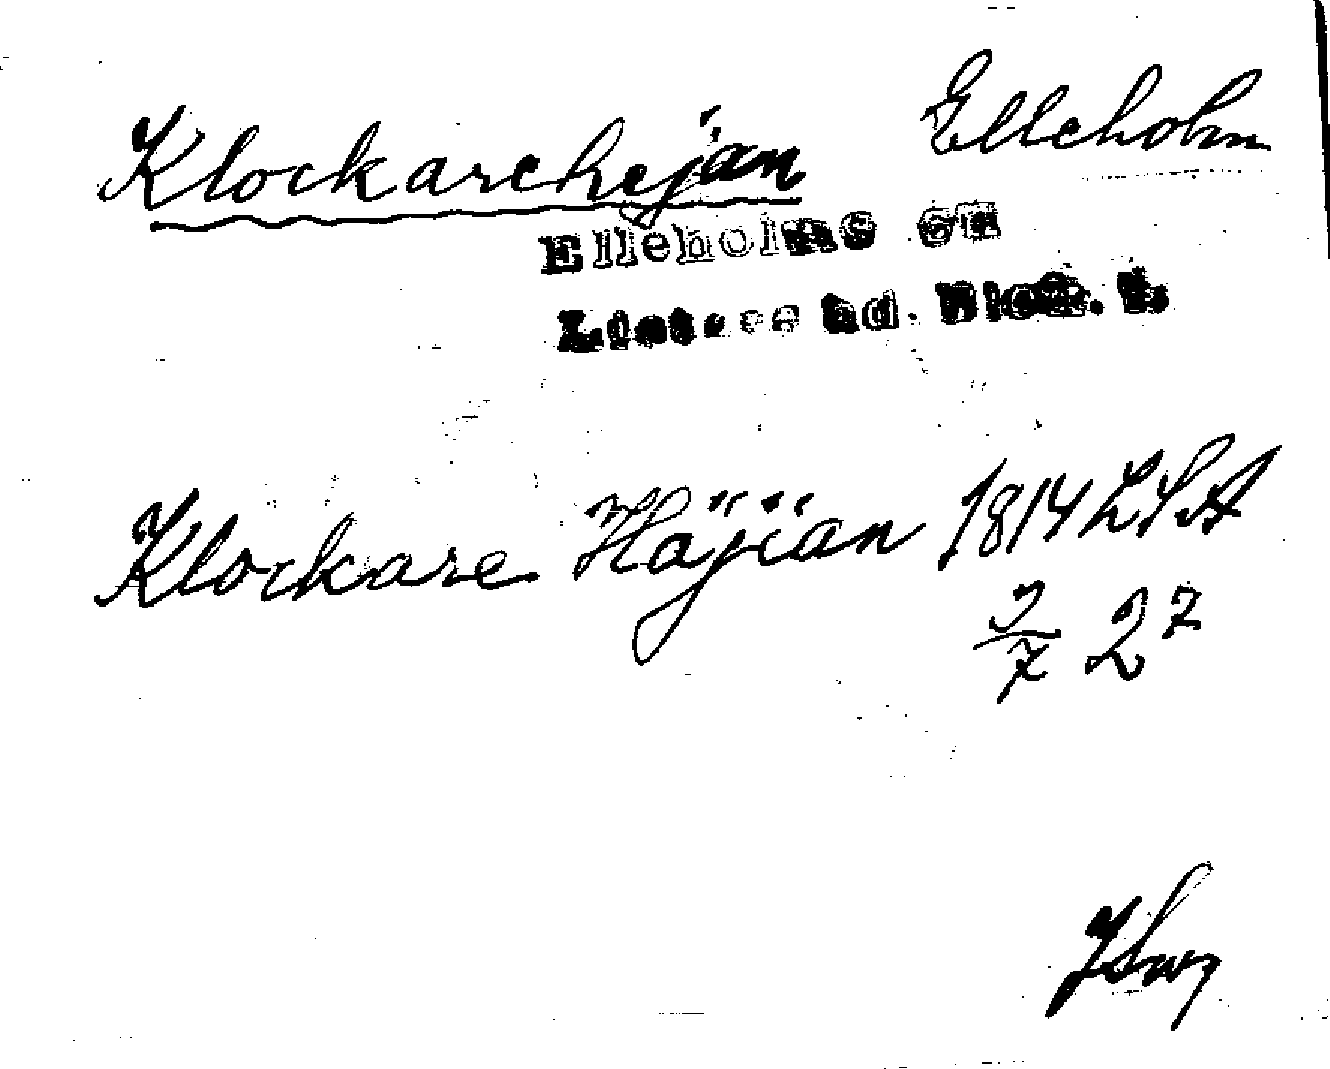 Klockarehejan Elleholm
Elleholms sn
Listers hd. Blek. l.
Klockare Häjian 1814 LSA
7/7 2 7